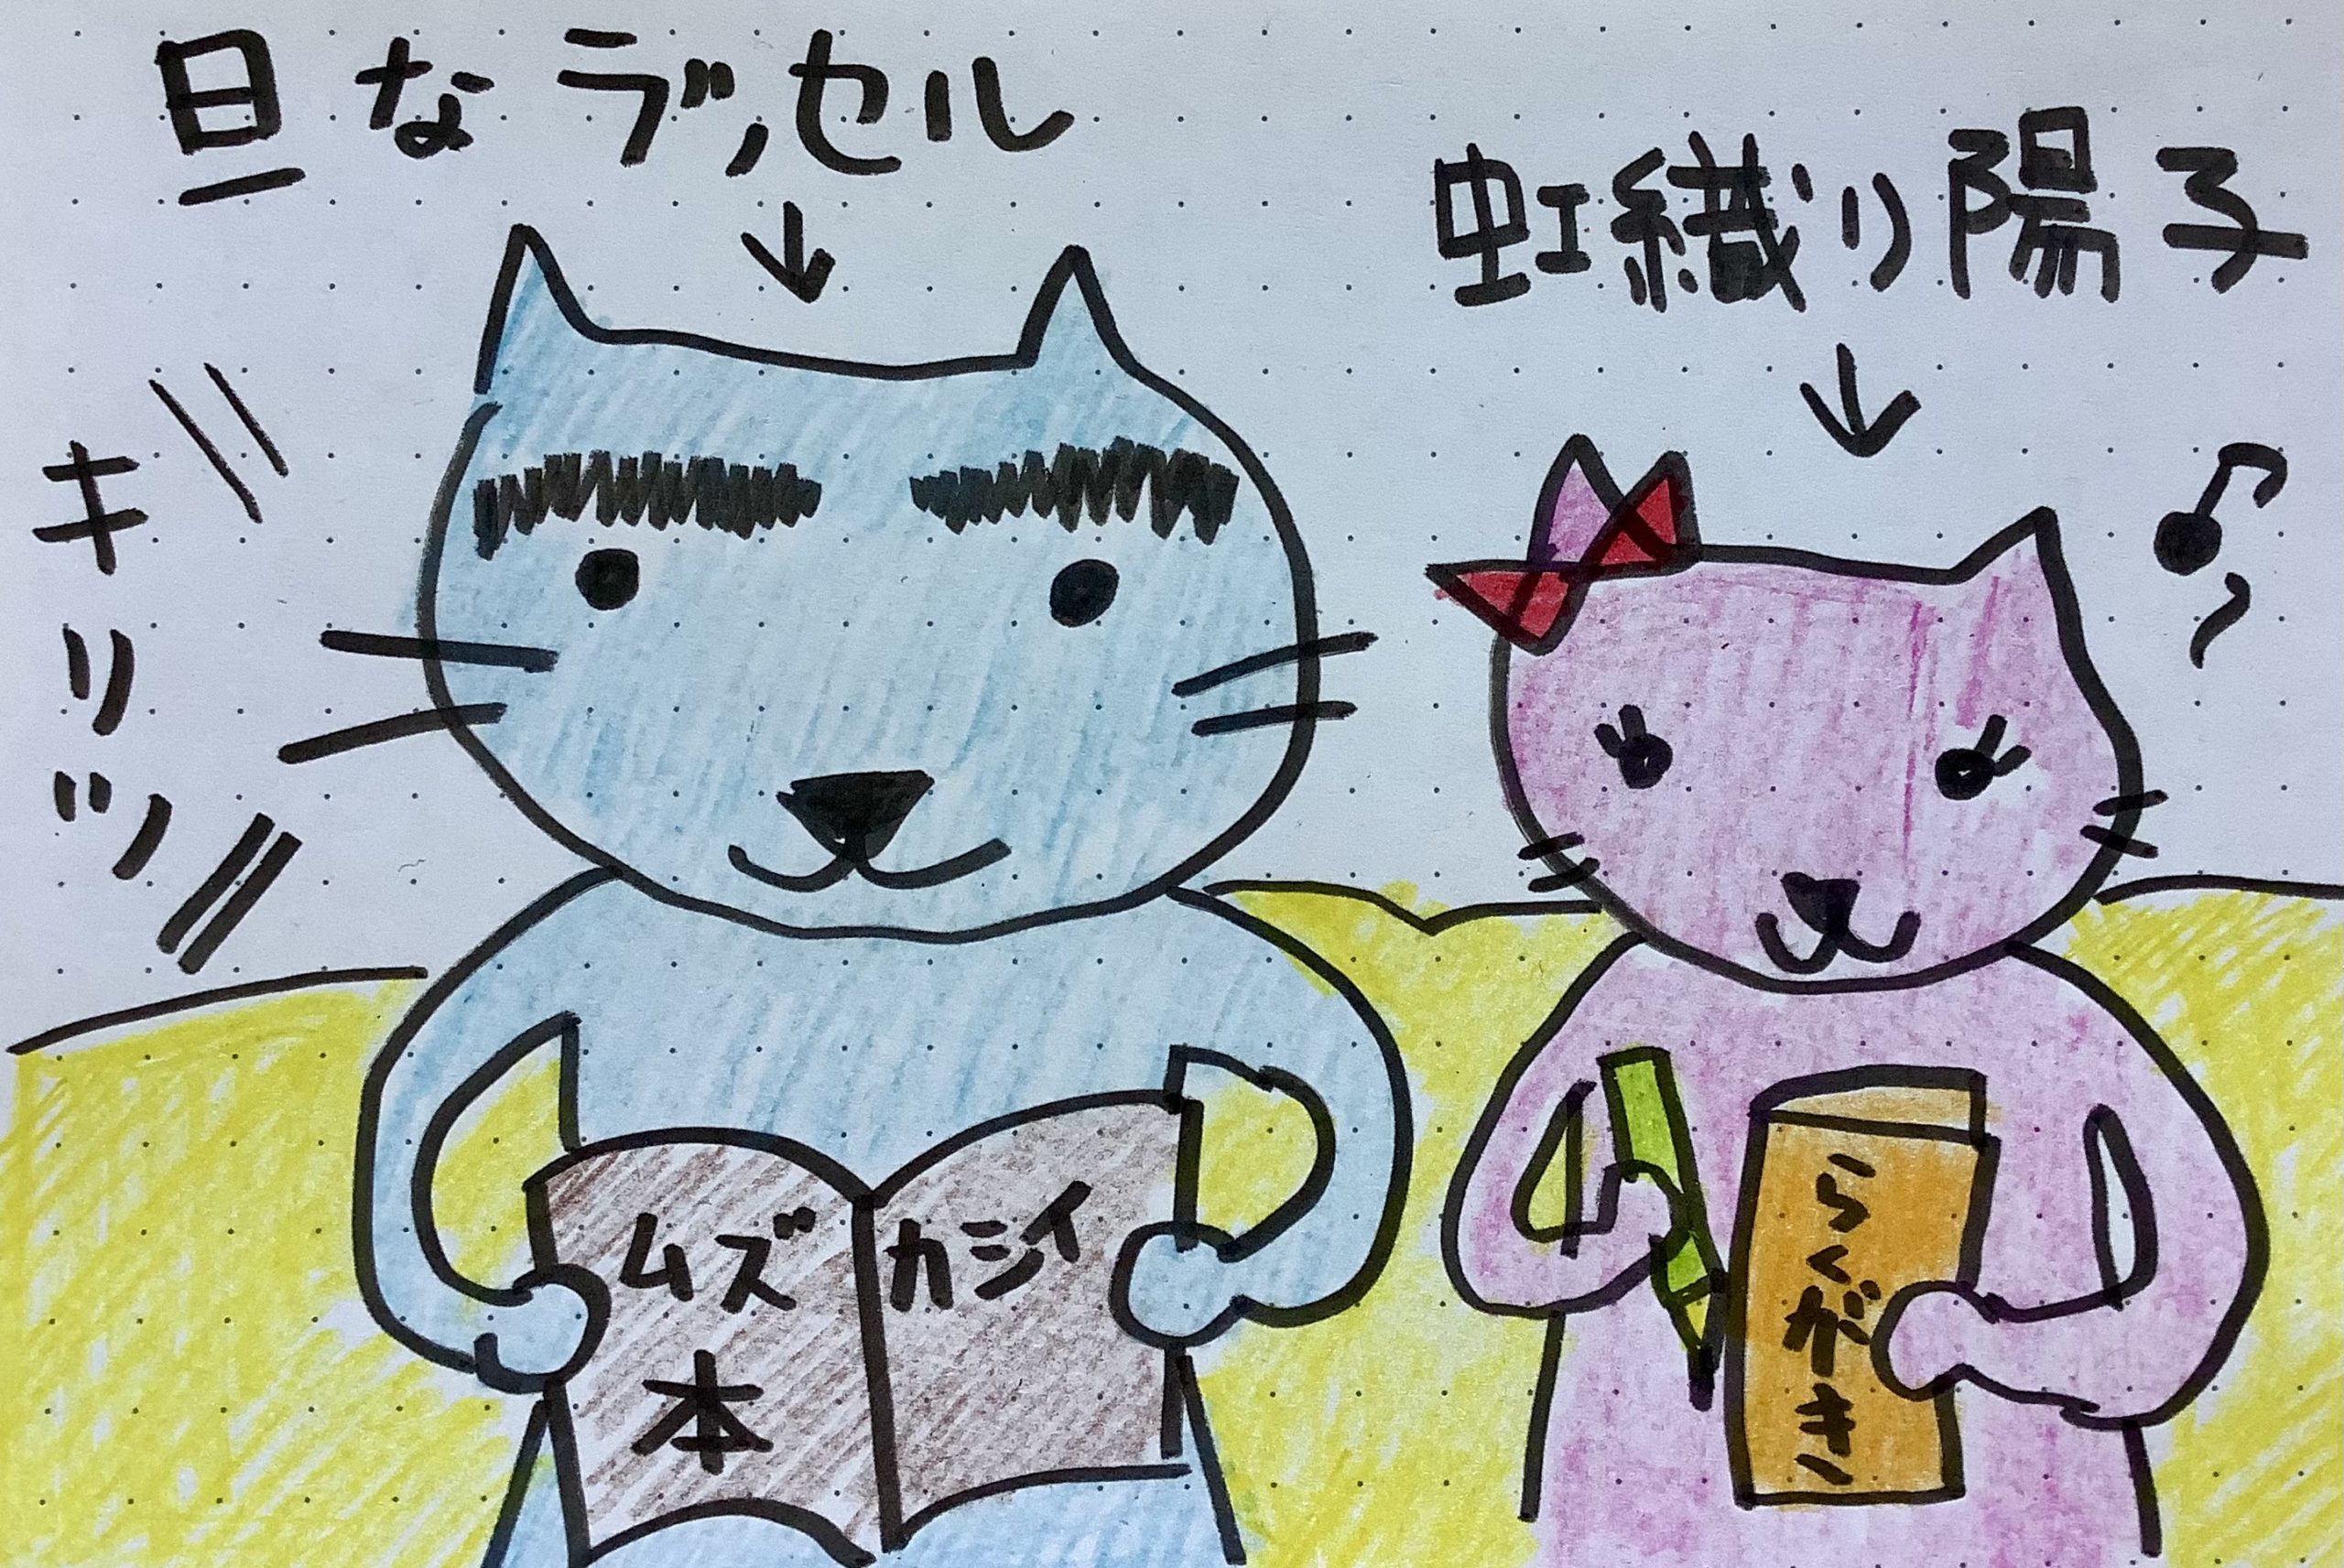 旦なラッセル
虹織り陽子
キリッ
ムズカシイ
本
らくがき